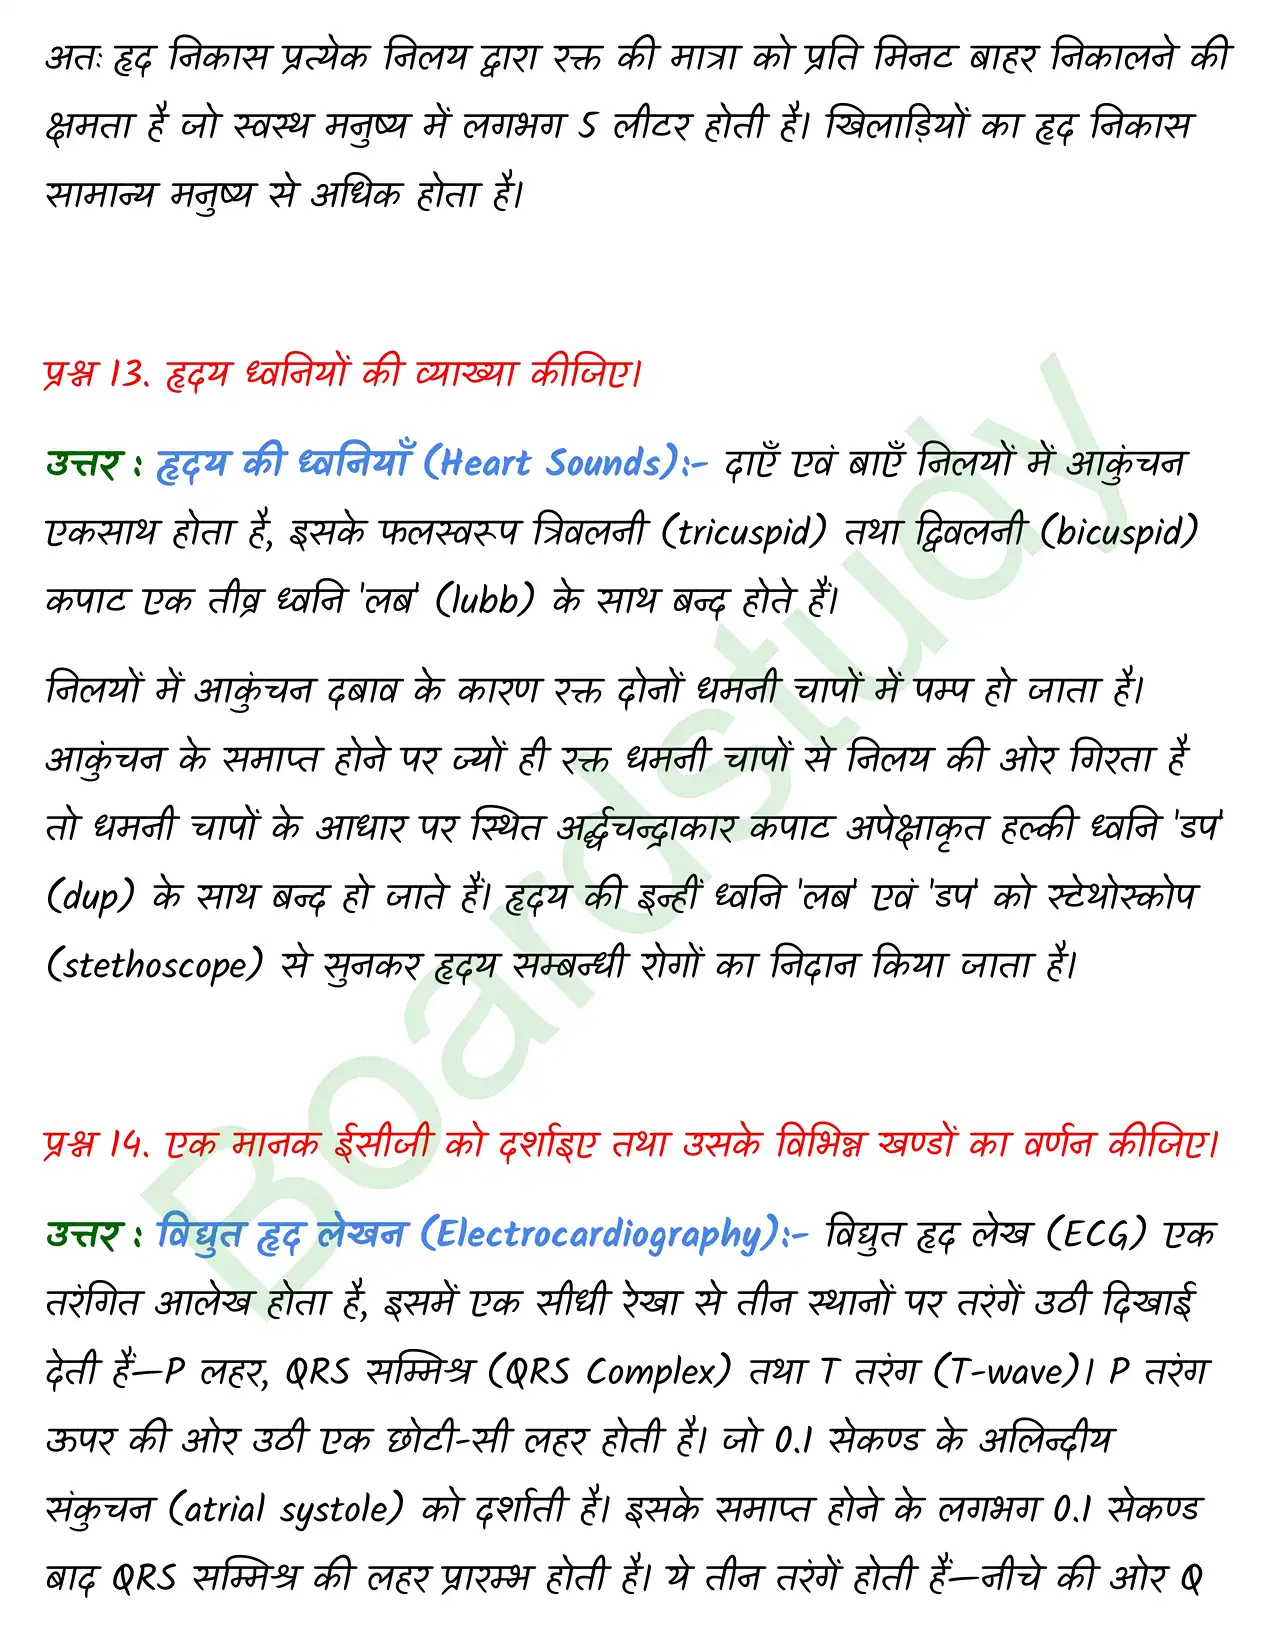 अतः हृद निकास प्रत्येक निलय द्वारा रक्त की मात्रा को प्रति मिनट बाहर निकालने की
क्षमता है जो स्वस्थ मनुष्य में लगभग 5 लीटर होती है। खिलाड़ियों का हृद निकास
सामान्य मनुष्य से अधिक होता है।
प्रश्न 13. हृदय ध्वनियों की व्याख्या कीजिए।
उत्तर : हृदय की ध्वनियाँ (Heart Sounds):- दाएँ एवं बाएँ निलयों में आकुंचन
एकसाथ होता है, इसके फलस्वरूप त्रिवलनी (tricuspid) तथा द्विवलनी (bicuspid)
कपाट एक तीव्र ध्वनि 'लब' (lubb) के साथ बन्द होते हैं।
निलयों में आकुंचन दबाव के कारण रक्त दोनों धमनी चापों में पम्प हो जाता है।
आकुंचन के समाप्त होने पर ज्यों ही रक्त धमनी चापों से निलय की ओर गिरता है
तो धमनी चापों के आधार पर स्थित अर्द्धचन्द्राकार कपाट अपेक्षाकृत हल्की ध्वनि 'डप'
(dup) के साथ बन्द हो जाते हैं। हृदय की इन्हीं ध्वनि 'लब' एवं 'डप' को स्टेथोस्कोप
(stethoscope) से सुनकर हृदय सम्बन्धी रोगों का निदान किया जाता है।
प्रश्न 14. एक मानक ईसीजी को दर्शाइए तथा उसके विभिन्न खण्डों का वर्णन कीजिए।
उत्तर : विद्युत हृद लेखन (Electrocardiography):- विद्युत हृद लेख (ECG) एक
तरंगित आलेख होता है, इसमें एक सीधी रेखा से तीन स्थानों पर तरंगें उठी दिखाई
देती हैं—P लहर, QRS सम्मिश्र (QRS Complex) तथा T तरंग (T-wave)। P तरंग
ऊपर की ओर उठी एक छोटी-सी लहर होती है। जो 0.1 सेकण्ड के अलिन्दीय
संकुचन (atrial systole) को दर्शाती है। इसके समाप्त होने के लगभग 0.1 सेकण्ड
बाद QRS सम्मिश्र की लहर प्रारम्भ होती है। ये तीन तरंगें होती हैं—नीचे की ओर Q
Boardstudy